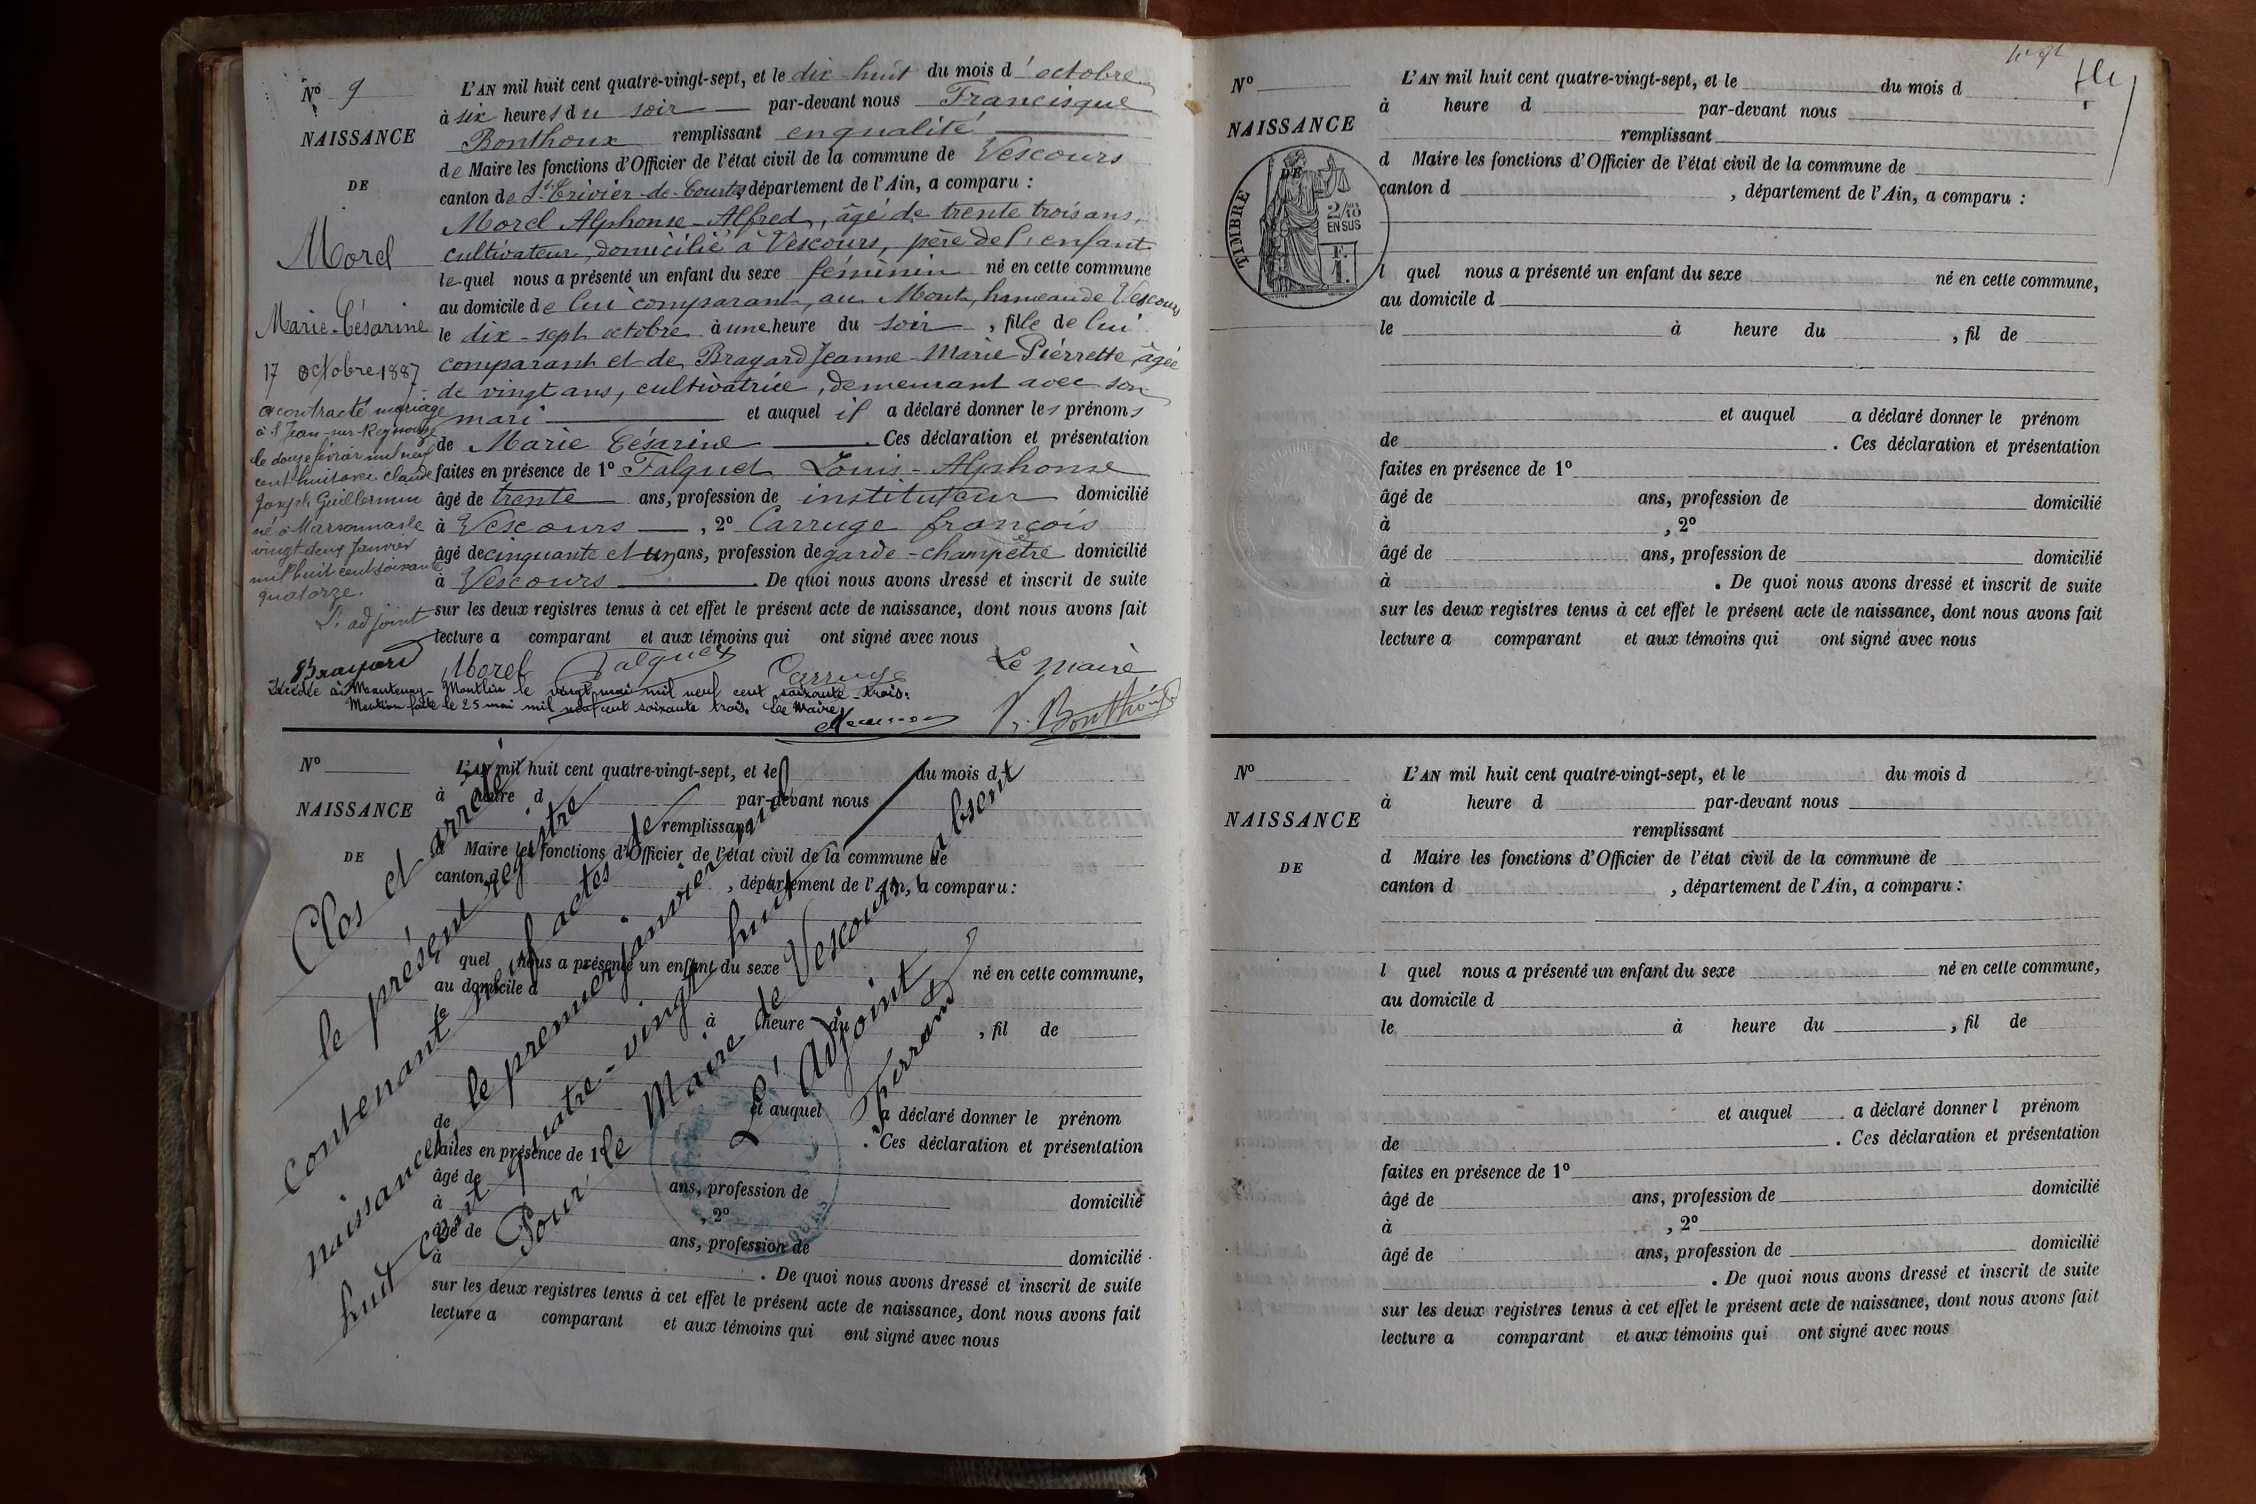 N° 9
NAISSANCE
DE
Morel
Marie-Césarine
17 octobre 1887
a contracté mariage
à St Jean-sur-Reyssouze
le douze février mil neuf
cent huit avec Claude
Joseph Guillermin
né à Marsonnas le
vingt deux Janvier
mil huit cent soixante
quatorze.
L'adjoint
L'AN mil huit cent quatre-vingt-sept, et le dix huit du mois d'octobre
à six heures du soir par-devant nous Francisque
Bonthoux remplissant en qualité
de Maire les fonctions d'Officier de l'état civil de la commune de Vescours
canton de St Trivier-de-Courtes, département de l'Ain, a comparu :
Morel Alphonse-Alfred, âgé de trente trois ans,
cultivateur, domicilié à Vescours, père de l'enfant
lequel nous a présenté un enfant du sexe féminin né en cette commune
au domicile de lui comparant, au Mont, hameau de Vescours
le dix-sept octobre à une heure du soir, fille de lui
comparant et de Bragard Jeanne-Marie Piérrette âgée
de vingt ans, cultivatrice, demeurant avec son
mari et auquel il a déclaré donner les prénoms
de Marie Césarine. Ces déclaration et présentation
faites en présence de 1° Falquet Louis-Alphonse
âgé de trente ans, profession de instituteur domicilié
à Vescours, 2° Carruge françois
âgé de cinquante et un ans, profession de garde-champêtre domicilié
à Vescours. De quoi nous avons dressé et inscrit de suite
sur les deux registres tenus à cet effet le présent acte de naissance, dont nous avons fait
lecture a comparant et aux témoins qui ont signé avec nous
Morel Falquet Carruge Le Maire
Décédée à Mantenay-Montlin le vingt mai mil neuf cent soixante-trois.
Mention faite le 25 mai mil neuf cent soixante trois. Le Maire,
F. Bonthoux
N°
NAISSANCE
DE
L'AN mil huit cent quatre-vingt-sept, et le du mois d
à heure d par-devant nous
remplissant
d Maire les fonctions d'Officier de l'état civil de la commune de
canton d , département de l'Ain, a comparu :
quel nous a présenté un enfant du sexe né en cette commune,
au domicile d
le à heure du , fil de
et auquel a déclaré donner le prénom
de . Ces déclaration et présentation
faites en présence de 1°
âgé de ans, profession de domicilié
à , 2°
âgé de ans, profession de domicilié
à . De quoi nous avons dressé et inscrit de suite
sur les deux registres tenus à cet effet le présent acte de naissance, dont nous avons fait
lecture a comparant et aux témoins qui ont signé avec nous
Clos et arrêté
le présent registre
contenant neuf actes de
naissances, le premier janvier mil
huit cent quatre-vingt huit
Pour le Maire de Vescours, absent
L'Adjoint
Ferrand
N°
NAISSANCE
TIMBRE
DE
2/10
EN SUS
F.
1.
L'AN mil huit cent quatre-vingt-sept, et le du mois d
à heure d par-devant nous
remplissant
d Maire les fonctions d'Officier de l'état civil de la commune de
canton d , département de l'Ain, a comparu :
l quel nous a présenté un enfant du sexe né en cette commune,
au domicile d
le à heure du , fil de
et auquel a déclaré donner le prénom
de . Ces déclaration et présentation
faites en présence de 1°
âgé de ans, profession de domicilié
à , 2°
âgé de ans, profession de domicilié
à . De quoi nous avons dressé et inscrit de suite
sur les deux registres tenus à cet effet le présent acte de naissance, dont nous avons fait
lecture a comparant et aux témoins qui ont signé avec nous
N°
NAISSANCE
DE
L'AN mil huit cent quatre-vingt-sept, et le du mois d
à heure d par-devant nous
remplissant
d Maire les fonctions d'Officier de l'état civil de la commune de
canton d , département de l'Ain, a comparu :
l quel nous a présenté un enfant du sexe né en cette commune,
au domicile d
le à heure du , fil de
et auquel a déclaré donner l prénom
de . Ces déclaration et présentation
faites en présence de 1°
âgé de ans, profession de domicilié
à , 2°
âgé de ans, profession de domicilié
. De quoi nous avons dressé et inscrit de suite
sur les deux registres tenus à cet effet le présent acte de naissance, dont nous avons fait
lecture a comparant et aux témoins qui ont signé avec nous